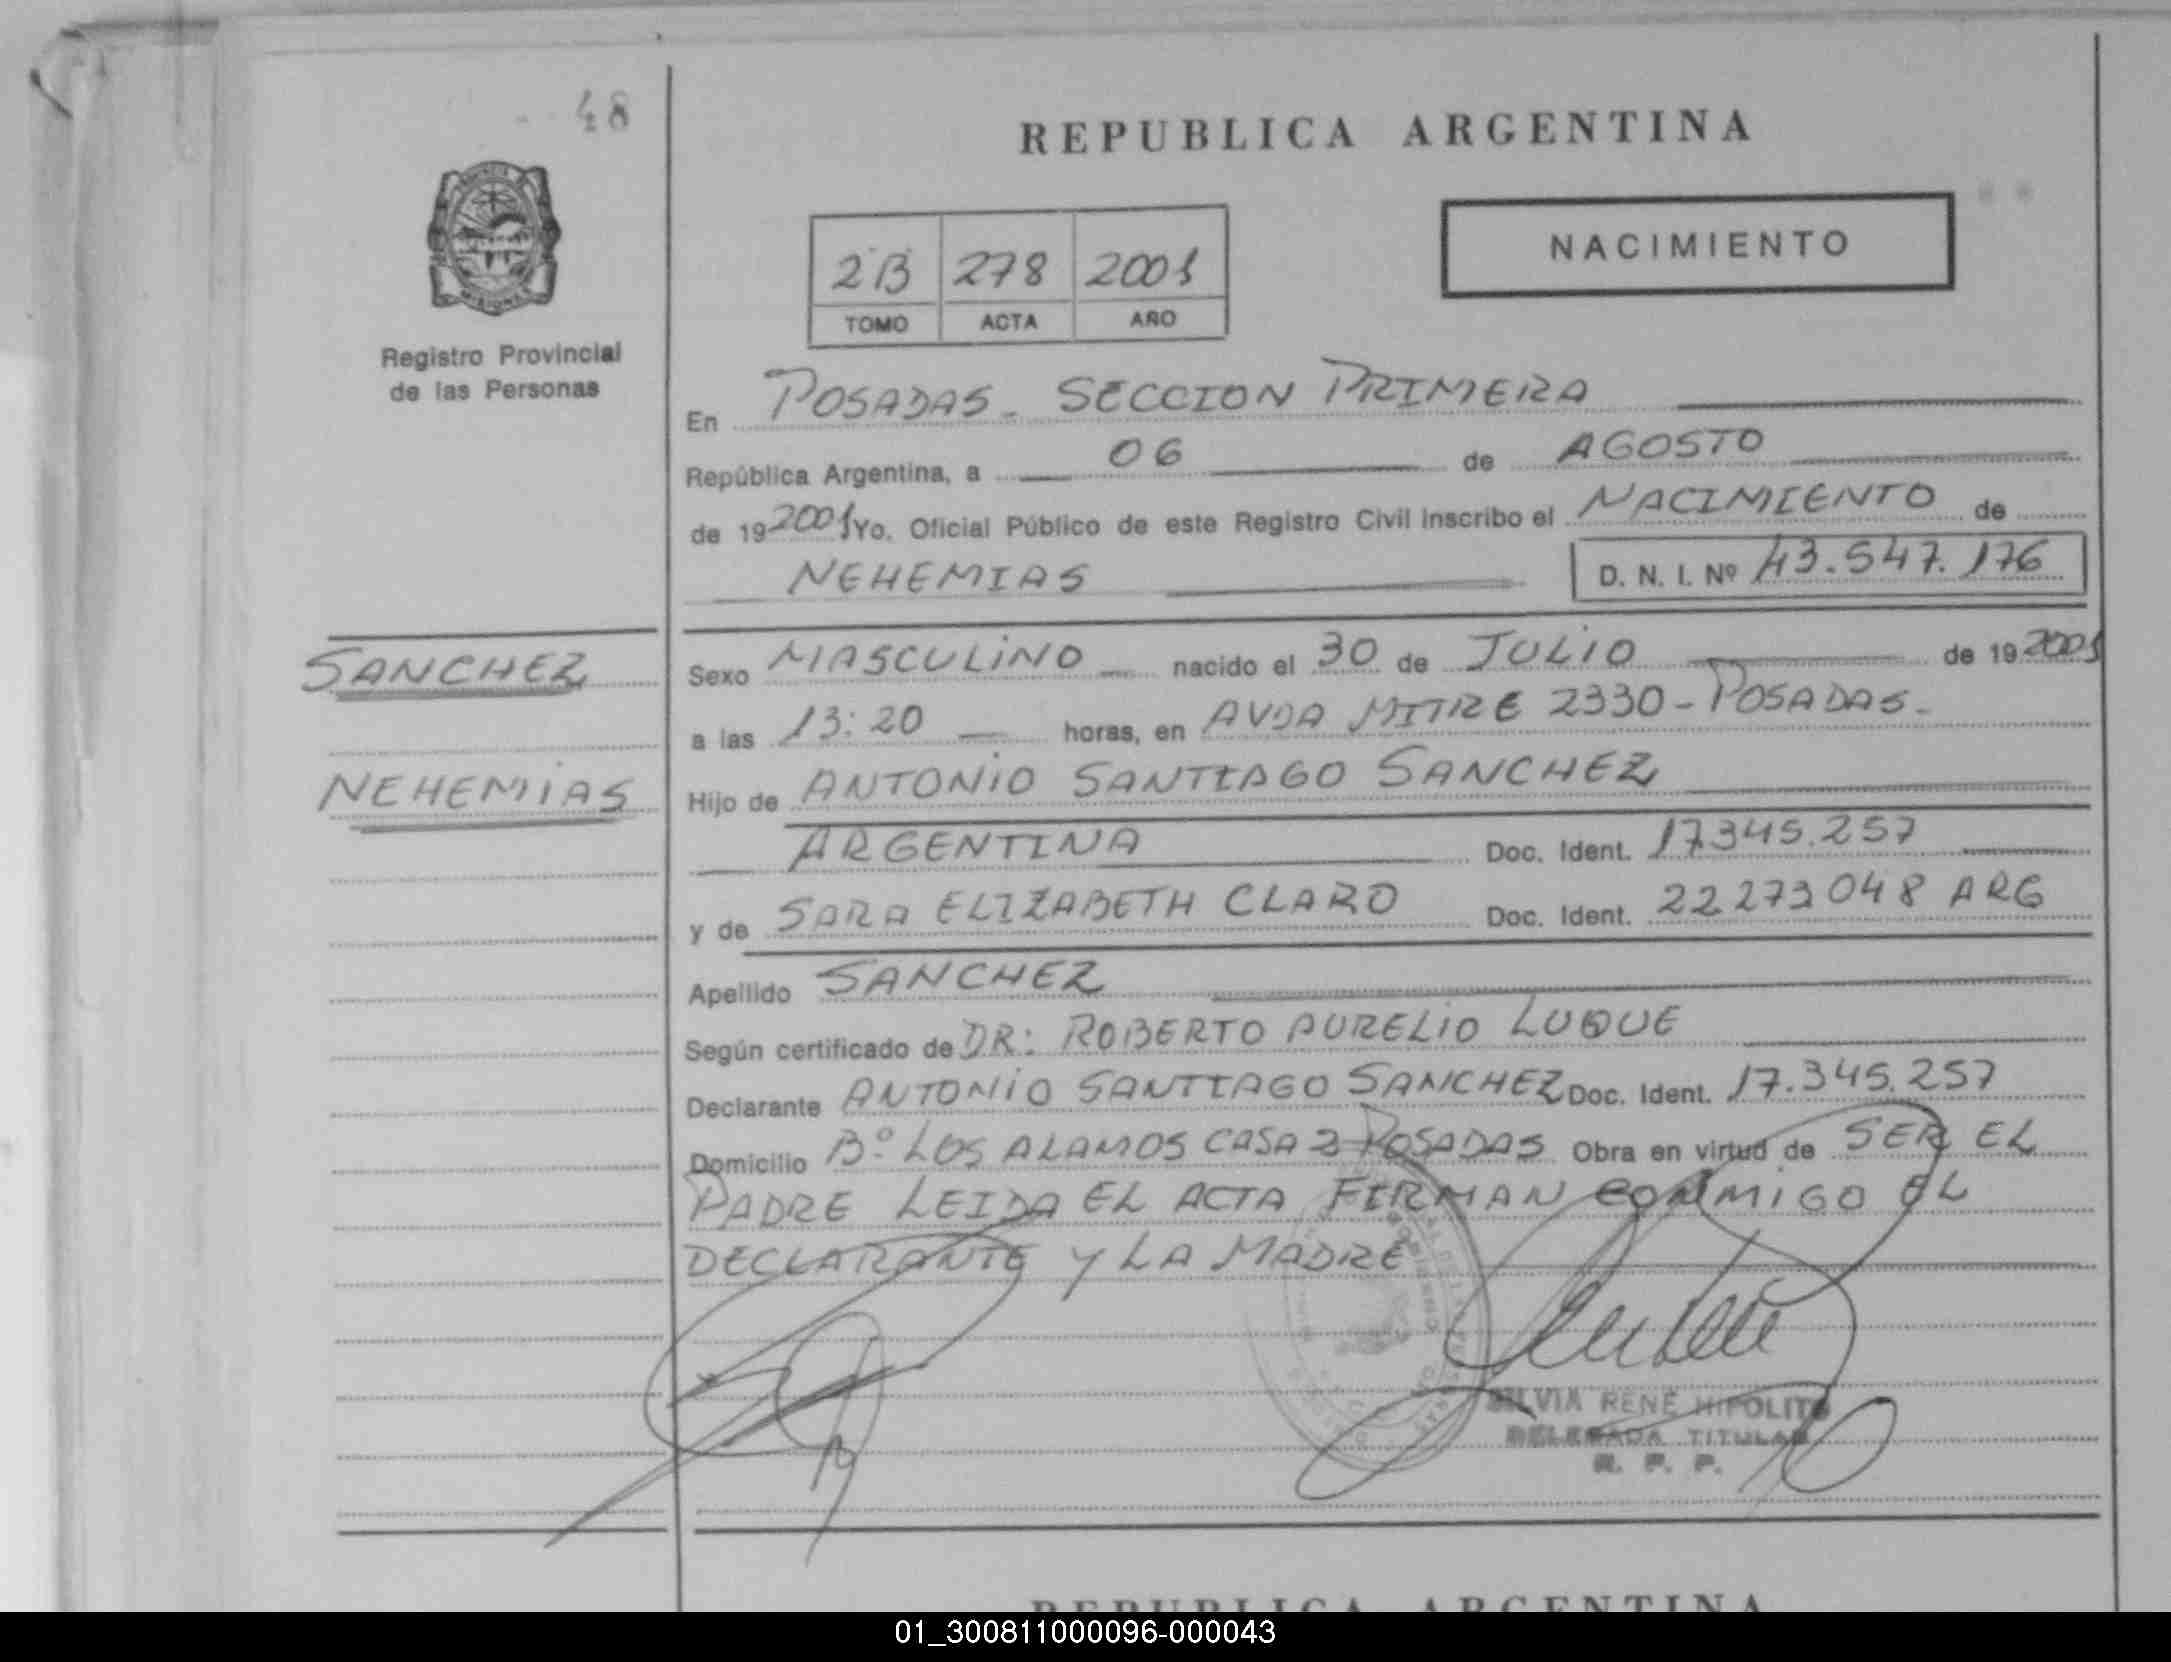 48
REPUBLICA ARGENTINA
NACIMIENTO
2B 278 2001
TOMO ACTA AÑO
Registro Provincial
de las Personas
En POSADAS - SECCION PRIMERA
República Argentina, a 06 de AGOSTO
de 19 2001 Yo. Oficial Público de este Registro Civil inscribo el NACIMIENTO de
NEHEMIAS D. N. I. Nº 43.547.176
SANCHEZ
Sexo MASCULINO nacido el 30 de JULIO de 19 2001
a las 13:20 horas, en AVDA MITRE 2330 - POSADAS -
NEHEMIAS
Hijo de ANTONIO SANTIAGO SANCHEZ
ARGENTINA Doc. Ident. 17345.257
y de SARA ELIZABETH CLARO Doc. Ident. 22273048 ARG
Apellido SANCHEZ
Según certificado de DR: ROBERTO AURELIO LUQUE
Declarante ANTONIO SANTIAGO SANCHEZ Doc. Ident. 17.345.257
Domicilio Bº LOS ALAMOS CASA 2 POSADAS Obra en virtud de SER EL
PADRE LEIDA EL ACTA FIRMAN CONMIGO EL
DECLARANTE Y LA MADRE
SILVIA RENÉ HIPOLITO
DELEGADA TITULAR
R. P. P.
REPUBLICA ARGENTINA
01_300811000096-000043